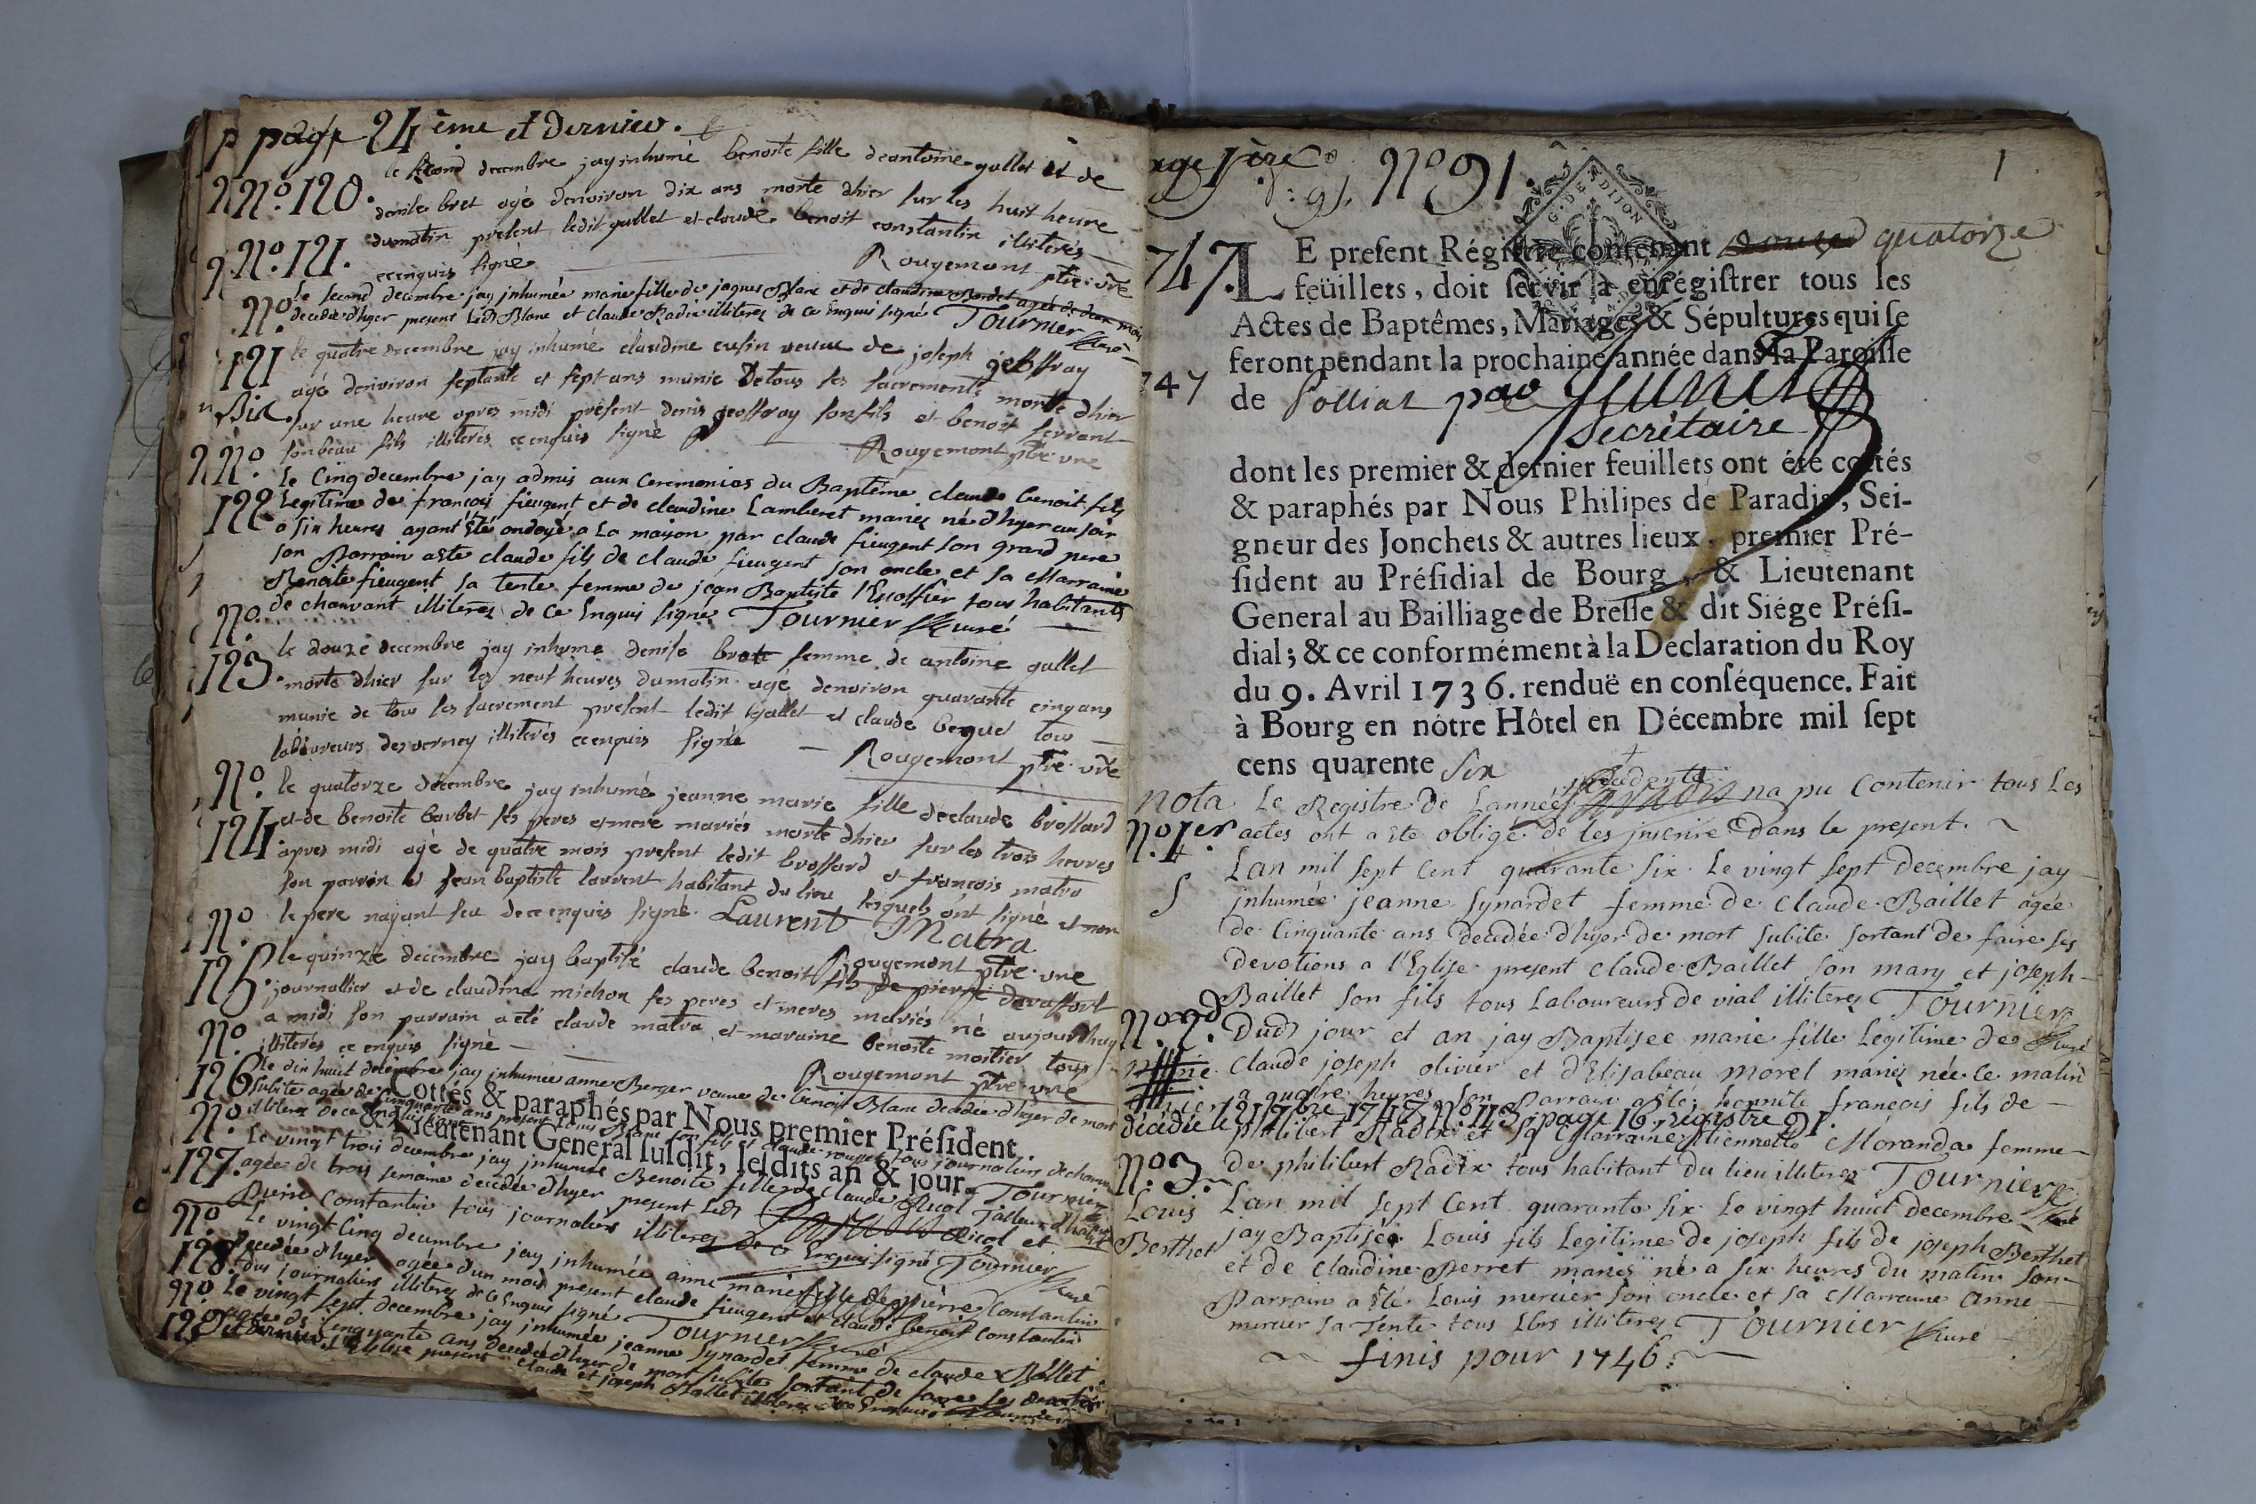 page 24 ème et dernier.
N.º 120. le second decembre jay inhumé benoite fille deantoine gallet et de
denise bret agé denviron dix ans morte dhier sur les huit heure
N.º 121. dumatin present ledit gallet et claude benoit constantin illiterés
ecenquis signé Rougemont ptre vre
N.º le second decembre jay jnhumée marie fille de jaques Blanc et de claudine Bordet agée de deux mois
decedée d'hyer present led Blanc et Claude Radix illiterez de ce Enquis signé Tournier Curé
121 le quatre decembre jay inhumé claudine cusin veuve de joseph jeoffray
Bis. agé denviron septante et sept ans munie de tous ses sacrements morte dhier
sur une heure apres midi present denis geoffray son fils et benoit ferrant
N.º son beau fils illiterés ecenquis signé Rougemont ptre vre
122 Le Cinq decembre jay admis aux Ceremonies du Baptême claude benoit fils
Legitime de françois fieugent et de claudine Lamberet mariez né d'hyer au soir
a six heures ayant Eté ondoyé a La maison par claude fieugent son grand pere
son Parrain a ete claude fils de claude fieugent son oncle et sa Marraine
Benoite fieugent sa tente femme de jean Baptiste l'Escoffier tous habitants
N.º de chanvant illiterez de ce Enquis signé Tournier Curé
123. le douze decembre jay inhumé denise brett femme de antoine gallet
morte dhier sur les neuf heures dumatin agé denviron quarante cinq ans
munie de tous ses sacrement present ledit gallet et claude berguet tous
laboureurs desverney illiterés ecenquis signé Rougemont ptre vre
N.º le quatorze decembre jay inhumé jeanne marie fille declaude brossard
124. et de benoite barbet ses peres et mere mariés morte dhier sur les trois heures
apres midi agé de quatre mois present ledit brossard et françois matra
son parrin et jean baptiste laurent habitant du lieu lesquels ont signé et non
N.º le pere nayant seu decenquis signé. Laurent Matra
Rougemont ptre vre
125. le quinze decembre jay baptisé claude benoit fils de pierre
journallier et de claudine michon ses peres et meres mariés né aujourdhuy
N.º a midi son parrain a eté claude matra et maraine benoite mostier tous
illiterés ecenquis signé Rougemont ptre vre
126 le dix huict decembre jay jnhumée anne Berger veuve de benoit Blanc decedée d'hyer de mort
subite agée de cinquante ans present
N.º illiterez de ce Enquis Tournier
Cottés & paraphés par Nous premier Président
& Lieutenant General susdit, lesdits an & jour.
127. Le vingt trois decembre jay jnhumée Benoite fille de Claude Ricol Tailleur d'habit
agée de trois semaine decedée d'hyer present led Ricol et
Pierre Constantin tous journaliers illiterez de ce Enquis signé Tournier Curé
N.º Le vingt Cinq decembre jay jnhumée anne marie fille de pierre Constantin
128. decedée d'hyer agée d'un mois present claude fieugent et claude benoit Constantin
tous journaliers illiterez de ce Enquis signé Tournier Curé
N.º Le vingt sept decembre jay jnhumée jeanne Synardet femme de claude Ballet
129 et dernier agée de Cinquante ans decedée d'hyer de mort subite sortant de faire ses devotions
a l'Eglise present claude et joseph Ballet illiterez de ce Enquis Tournier
page 1ère N.º 91. 1
: 91.
747.
LE present Régistre contenant quatorze
feüillets, doit servir à enrégistrer tous les
Actes de Baptêmes, Mariages & Sépultures qui se
feront pendant la prochaine année dans la Paroisse
747 de Polliat par
Secrétaire
dont les premier & dernier feuillets ont été cottés
& paraphés par Nous Philipes de Paradis, Sei-
gneur des Jonchets & autres lieux, premier Pré-
sident au Présidial de Bourg, & Lieutenant
General au Bailliage de Bresse & dit Siége Prési-
dial; & ce conformément à la Déclaration du Roy
du 9. Avril 1736. renduë en conséquence. Fait
à Bourg en nôtre Hôtel en Décembre mil sept
cens quarente six
nota Le Registre de Lannée precedente na pu Contenir tous Les
N.º 1er actes ont a ete obligé de les jnscrire dans le present.
S Lan mil sept Cent quarante six Le vingt sept decembre jay
jnhumée jeanne Synardet femme de Claude Baillet agée
de Cinquante ans decedée d'hyer de mort subite sortant de faire ses
devotions a l'Eglise present Claude Baillet son mary et joseph
Baillet son fils tous Laboureurs de vial illiterez Tournier
N.º 2d. Dud jour et an jay Baptisée marie fille Legitime de Curé
Claude joseph olivier et d'Elisabeau Morel mariez née ce matin
a quatre heures son Parrain a eté honnete françois fils de
decedée le 21 7bre 1747 N.º 113 page 16 registre 91.
philibert Radix et sa Marraine Etiennette Moranda femme
N.º 3. de philibert Radix tous habitant du lieu illiterez Tournier
Louis Lan mil sept Cent quarante six Le vingt huict decembre Curé
Berthet jay Baptisée Louis fils Legitime de joseph fils de joseph Berthet
et de Claudine Perret mariez né a six heures du matin son
Parrain a eté Louis mercier son oncle et sa Marraine anne
mercier sa Tente tous Lbrs illiterez Tournier Curé
finis pour 1746.